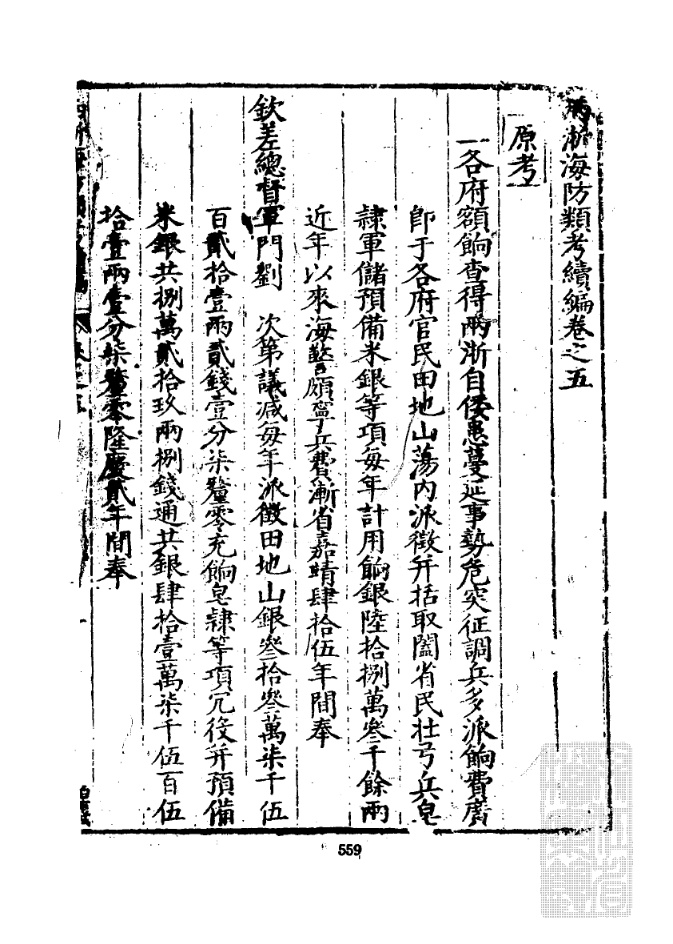 兩浙海防類考續編卷之五
原考
一各府額餉查得兩浙自倭患蔓延事勢危突征調兵多派餉費廣
卽于各府官民田地山蕩內派徵幷括取闔省民壯弓兵皂
隷軍儲預備米銀等項每年計用餉銀陸拾捌萬叁千餘兩
近年以來海警頗寧兵費漸省嘉靖肆拾伍年間奉
欽差總督軍門劉　次第議減每年派徵田地山銀叁拾叁萬柒千伍
百貳拾壹兩貳錢壹分柒釐零充餉皂隷等項冗役幷預備
米銀共捌萬貳拾玖兩捌錢通共銀肆拾壹萬柒千伍百伍
拾壹兩壹分柒釐零隆慶貳年間奉
559